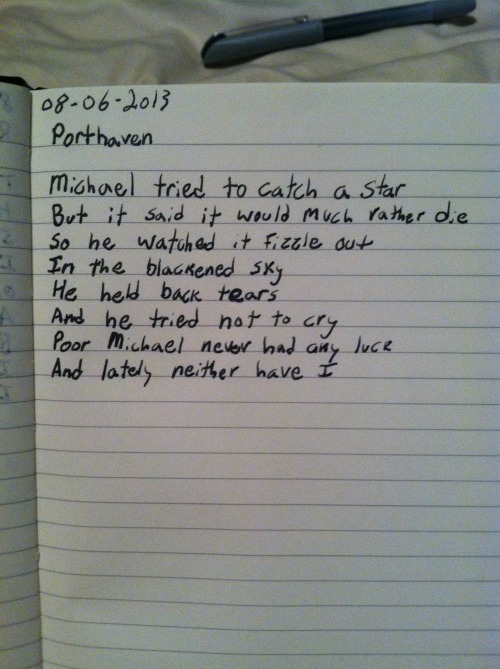 08-06-2013
Porthaven
Michael tried to catch a star
But it said it would much rather die
So he watched it fizzle out
In the blackened sky
He held back tears
And he tried not to cry
Poor Michael never had any luck
And lately neither have I